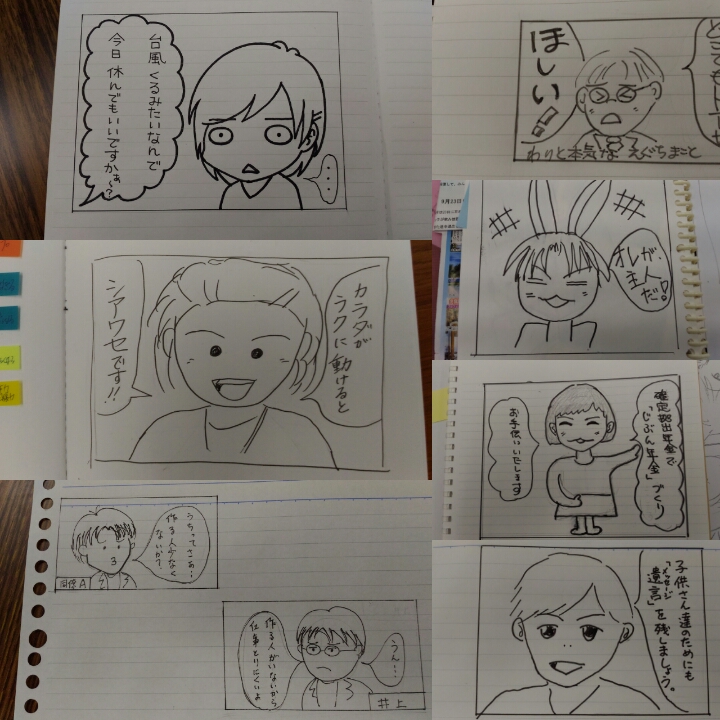 台風くるみたいなんで
今日休んでもいいですかぁ~?
・・・
ほしい
わりと本気な えぐちまこと
オレが、
主人
だ!
カラダが
ラクに動けると
シアワセです!!
確定拠出年金で
「じぶん年金」づくり
お手伝いいたします
うちってさぁ…
作る人少なく
ないか?
同僚A
うん…
作る人がいないから
仕事とりにくいよ
井上
子供さん達のためにも
「遺言」を残しましょう。
メッセージ
9月21日